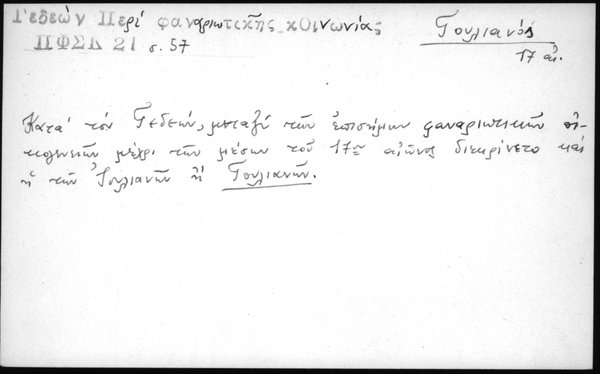 Γεδεών Περί φαναριωτικῆς κοινωνίας
ΠΦΣΚ 21 σ. 57
Γουλιανός
17 αἰ.
Κατά τόν Γεδεών, μεταξύ τῶν ἐπισήμων φαναριωτικῶν οἰ-
κογενειῶν μέχρι τῶν μέσων τοῦ 17ου αἰῶνος διεκρίνετο καί
ἡ τῶν Ἰουλιανῶν ἤ Γουλιανῶν.